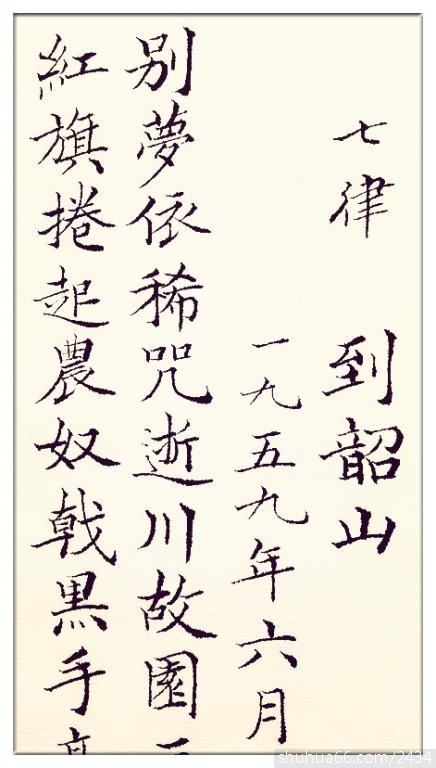 七律 到韶山
一九五九年六月
别夢依稀咒逝川故園
紅旗捲起農奴戟黑手
shuhua66.com/2434